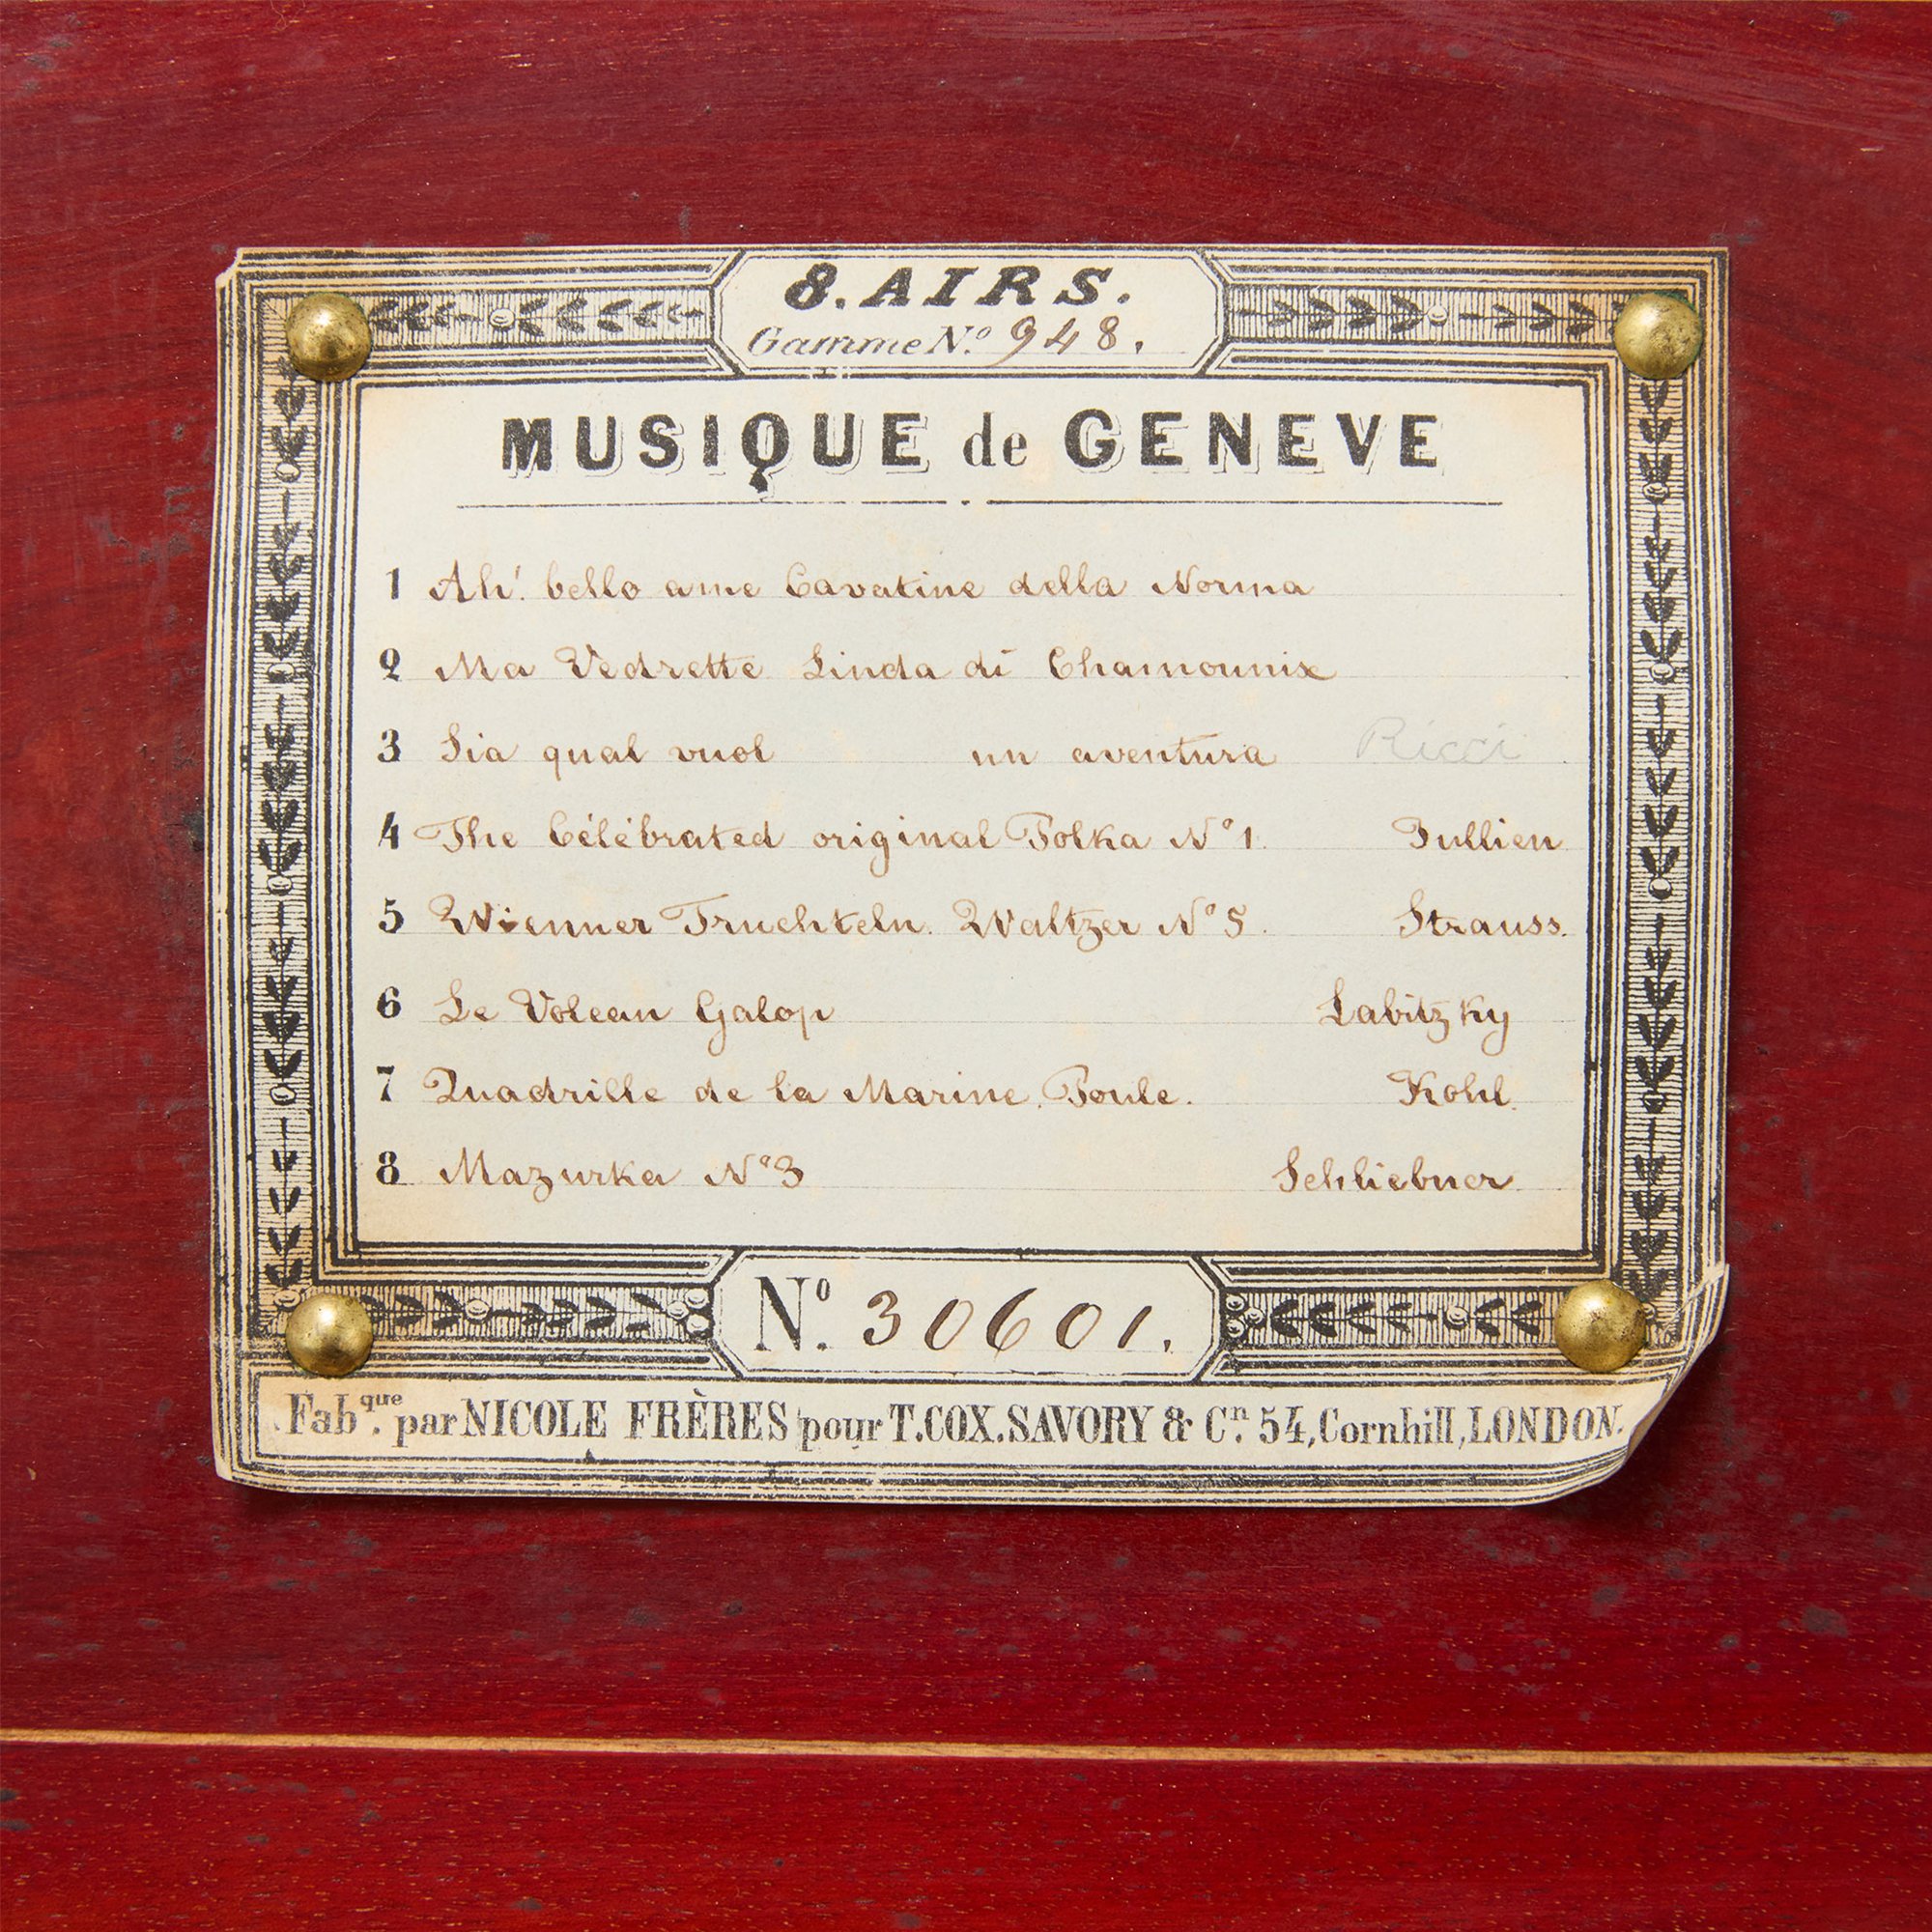 8. AIRS.
Gamme Nº 948.
MUSIQUE de GENEVE
1 Ah! bello ame Cavatine della Norma
2 Ma Vedrette Linda di Chamounix
3 Sia qual vuol un aventura Ricci
4 The Célébrated original Polka Nº 1. Jullien
5 Wienner Fruchteln. Waltzer Nº 5. Strauss.
6 Le Volcan Galop Labitzky
7 Quadrille de la Marine. Poule. Kohl.
8 Mazurka Nº 3 Schliebner
Nº. 30601.
Fab.que par NICOLE FRÈRES pour T. COX. SAVORY & Cn. 54, Cornhill, LONDON.